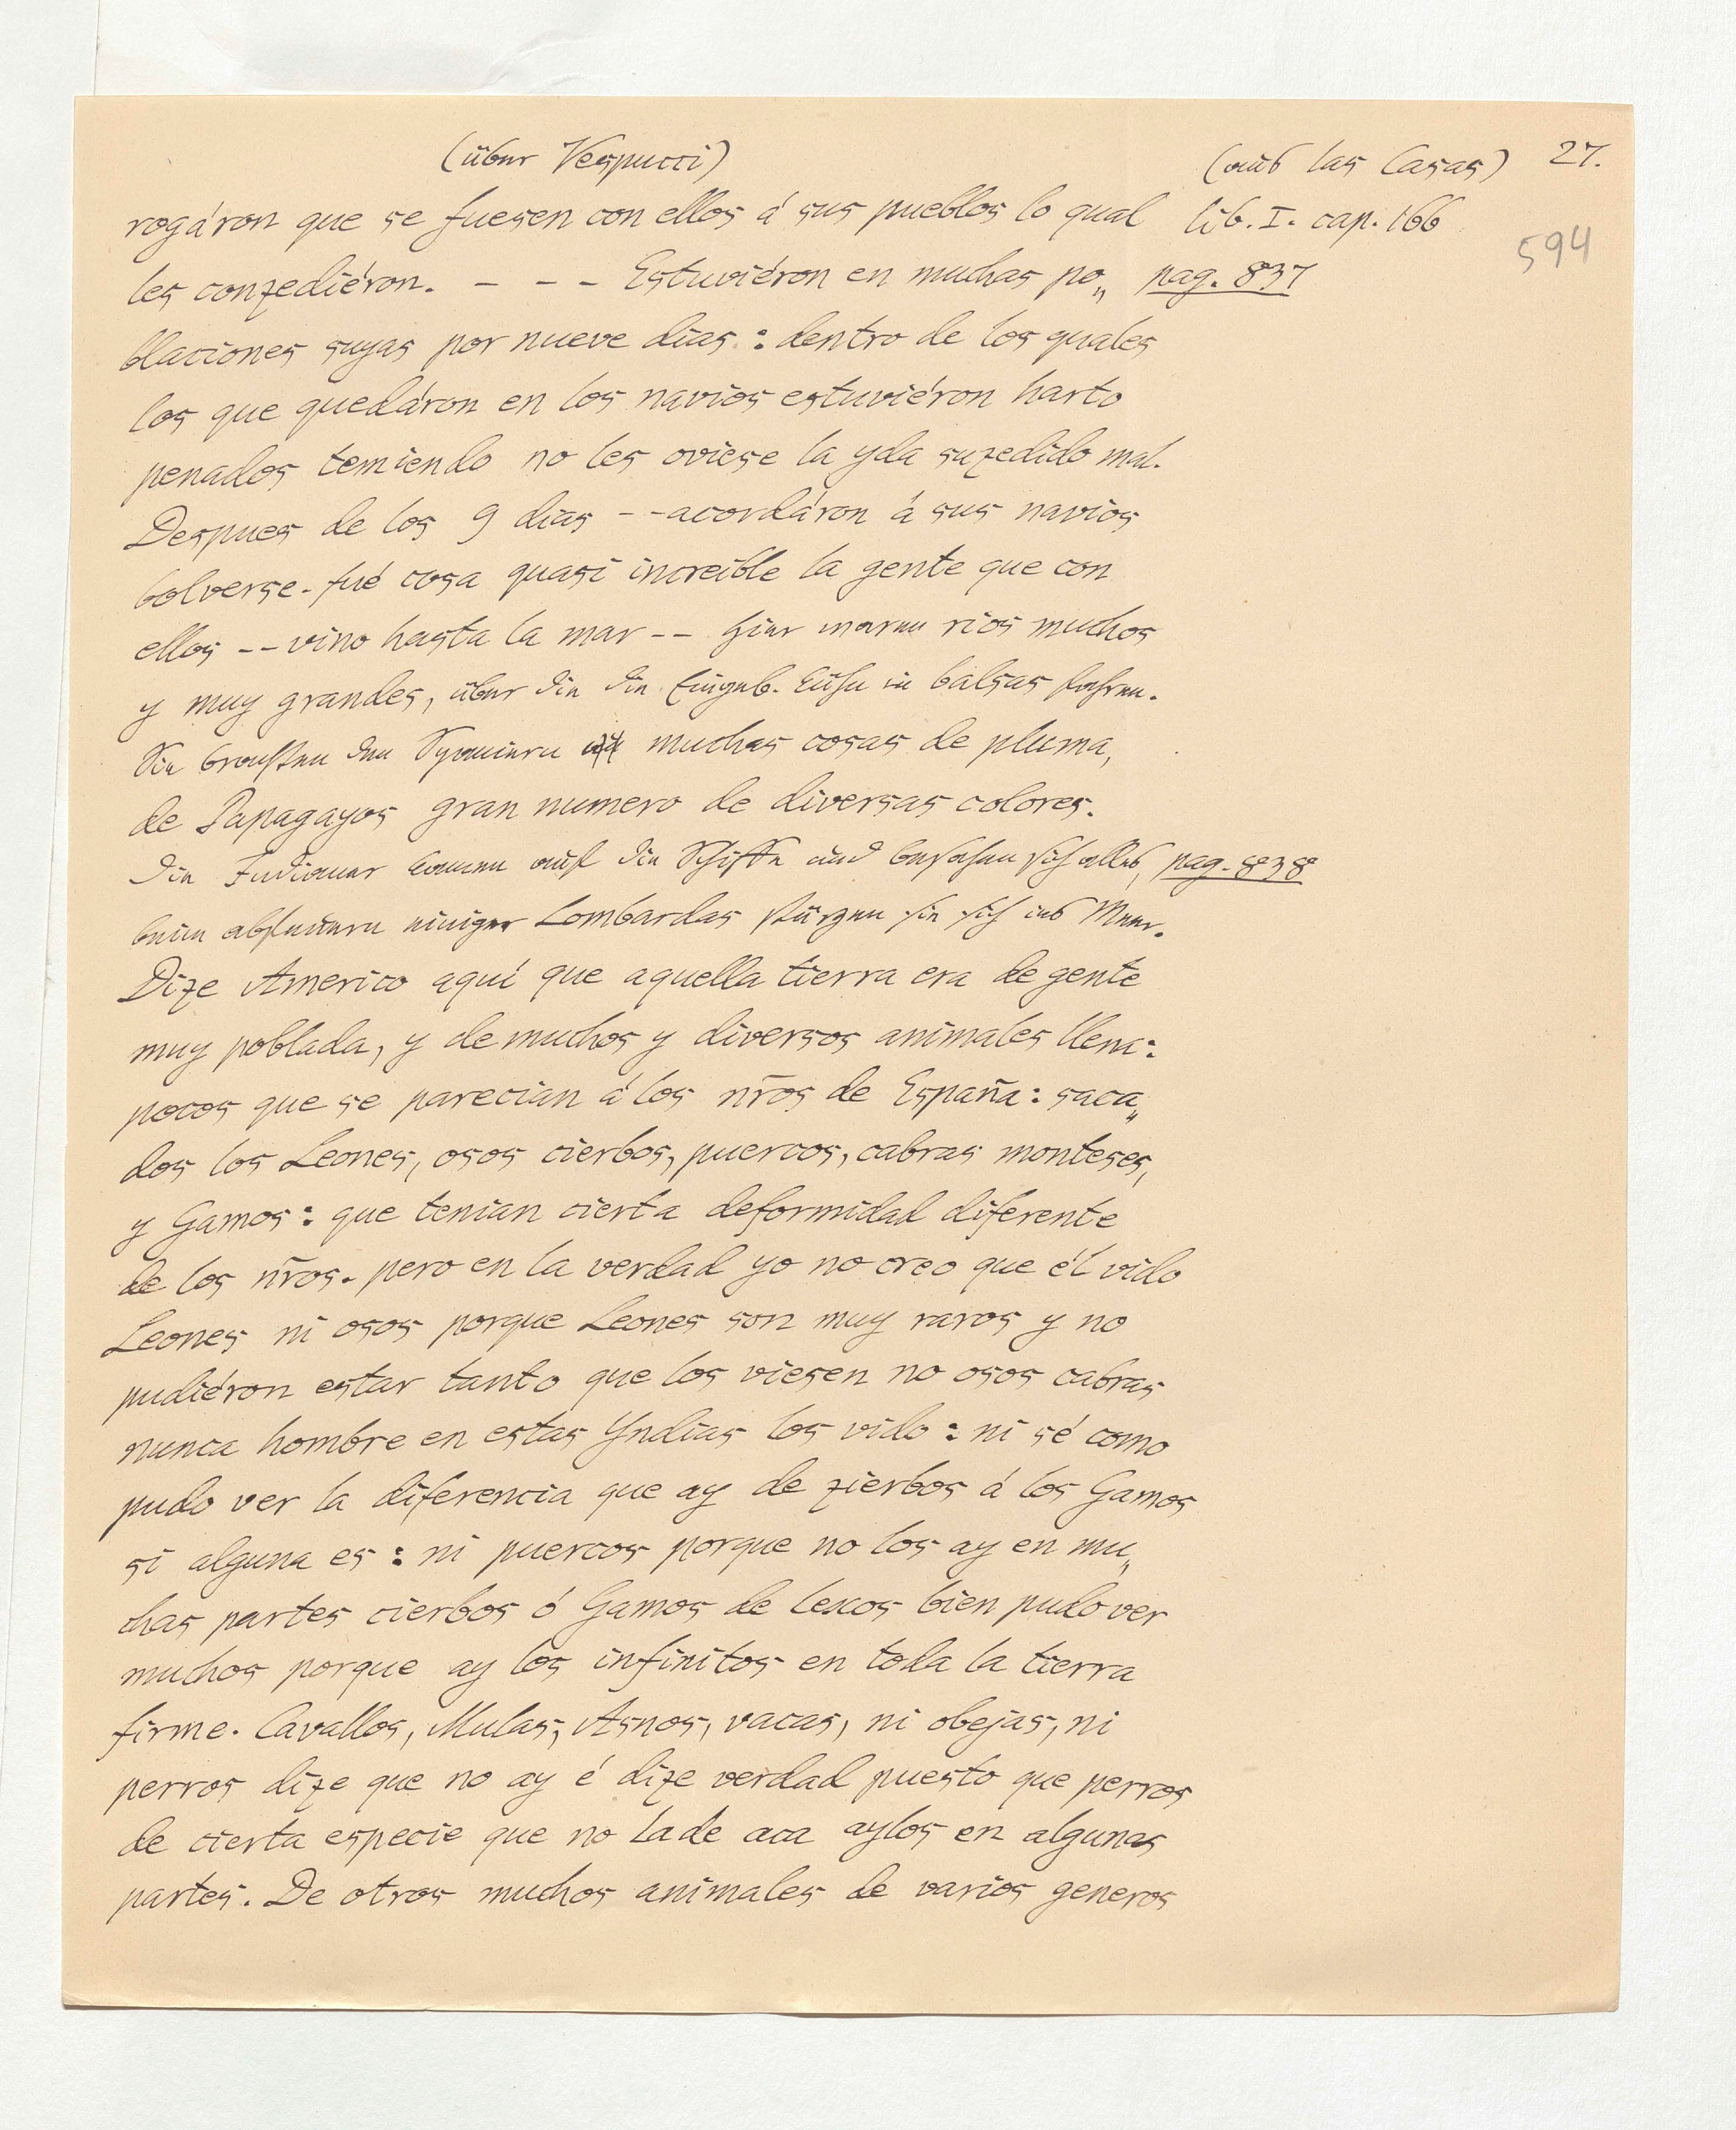 (über Vespucci)
(aus las Casas) 27.
594
rogáron que se fuesen con ellos á sus pueblos lo qual lib. I. cap. 166
les conzediéron. – – – Estuviéron en muchas po„ pag. 837
blaciones suyas por nueve dias : dentro de los quales
los que quedáron en los navios estuviéron harto
penados temiendo no les oviese la yda suzedido mal.
Despues de los 9 dias – – acordáron á sus navios
bolverse. fué cosa quasi increible la gente que con
ellos – – vino hasta la mar – – hier waren rios muchos
y muy grandes, über die die Eingeb. kühn in balsas fahren.
Sie brachten den Spaniern muchas cosas de pluma,
de Papagayos gran numero de diversas colores.
die Indianer kamen auf die Schiffe und besahen sich alles, pag. 838
beim abfeuern einiger Lombardas stürzen sie sich ins Meer.
Dize Americo aquí que aquella tierra era de gente
muy poblada, y de muchos y diversos animales llena:
pocos que se parecian á los nr̃os de España : saca„
dos los Leones, osos cierbos, puercos, cabras monteses,
y Gamos : que tenian cierta deformidad diferente
de los nr̃os. pero en la verdad yo no creo que él vido
Leones ni osos porque Leones son muy raros y no
pudiéron estar tanto que los viesen no osos cabras
nunca hombre en estas Yndias los vido : ni sé como
pudo ver la diferencia que ay de zierbos á los Gamos
si alguna es : ni puercos porque no los ay en mu„
chas partes cierbos ó Gamos de lexos bien pudo ver
muchos porque ay los infinitos en toda la tierra
firme. Cavallos, Mulas, Asnos, vacas, ni obejas, ni
perros dize que no ay é dize verdad puesto que perros
de cierta especie que no lade aca aylos en algunas
partes. De otros muchos animales de varios generos